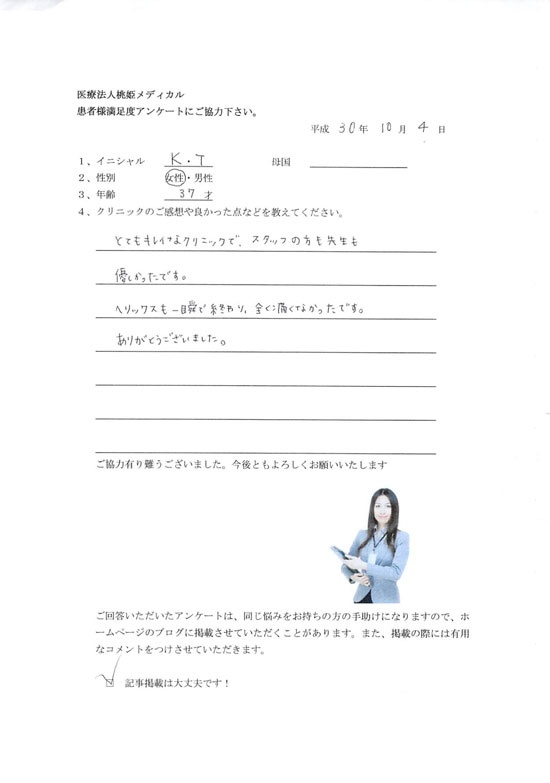 医療法人桃姫メディカル
患者様満足度アンケートにご協力下さい。
平成 30年 10月 4日
1、イニシャル K・T 母国
2、性別 女性・男性
3、年齢 37才
4、クリニックのご感想や良かった点などを教えてください。
とてもキレイなクリニックで、スタッフの方も先生も
優しかったです。
ヘリックスも一瞬で終わり、全く痛くなかったです。
ありがとうございました。
ご協力有り難うございました。今後ともよろしくお願いいたします
ご回答いただいたアンケートは、同じ悩みをお持ちの方の手助けになりますので、ホ
ームページのブログに掲載させていただくことがあります。また、掲載の際には有用
なコメントをつけさせていただきます。
☑ 記事掲載は大丈夫です！